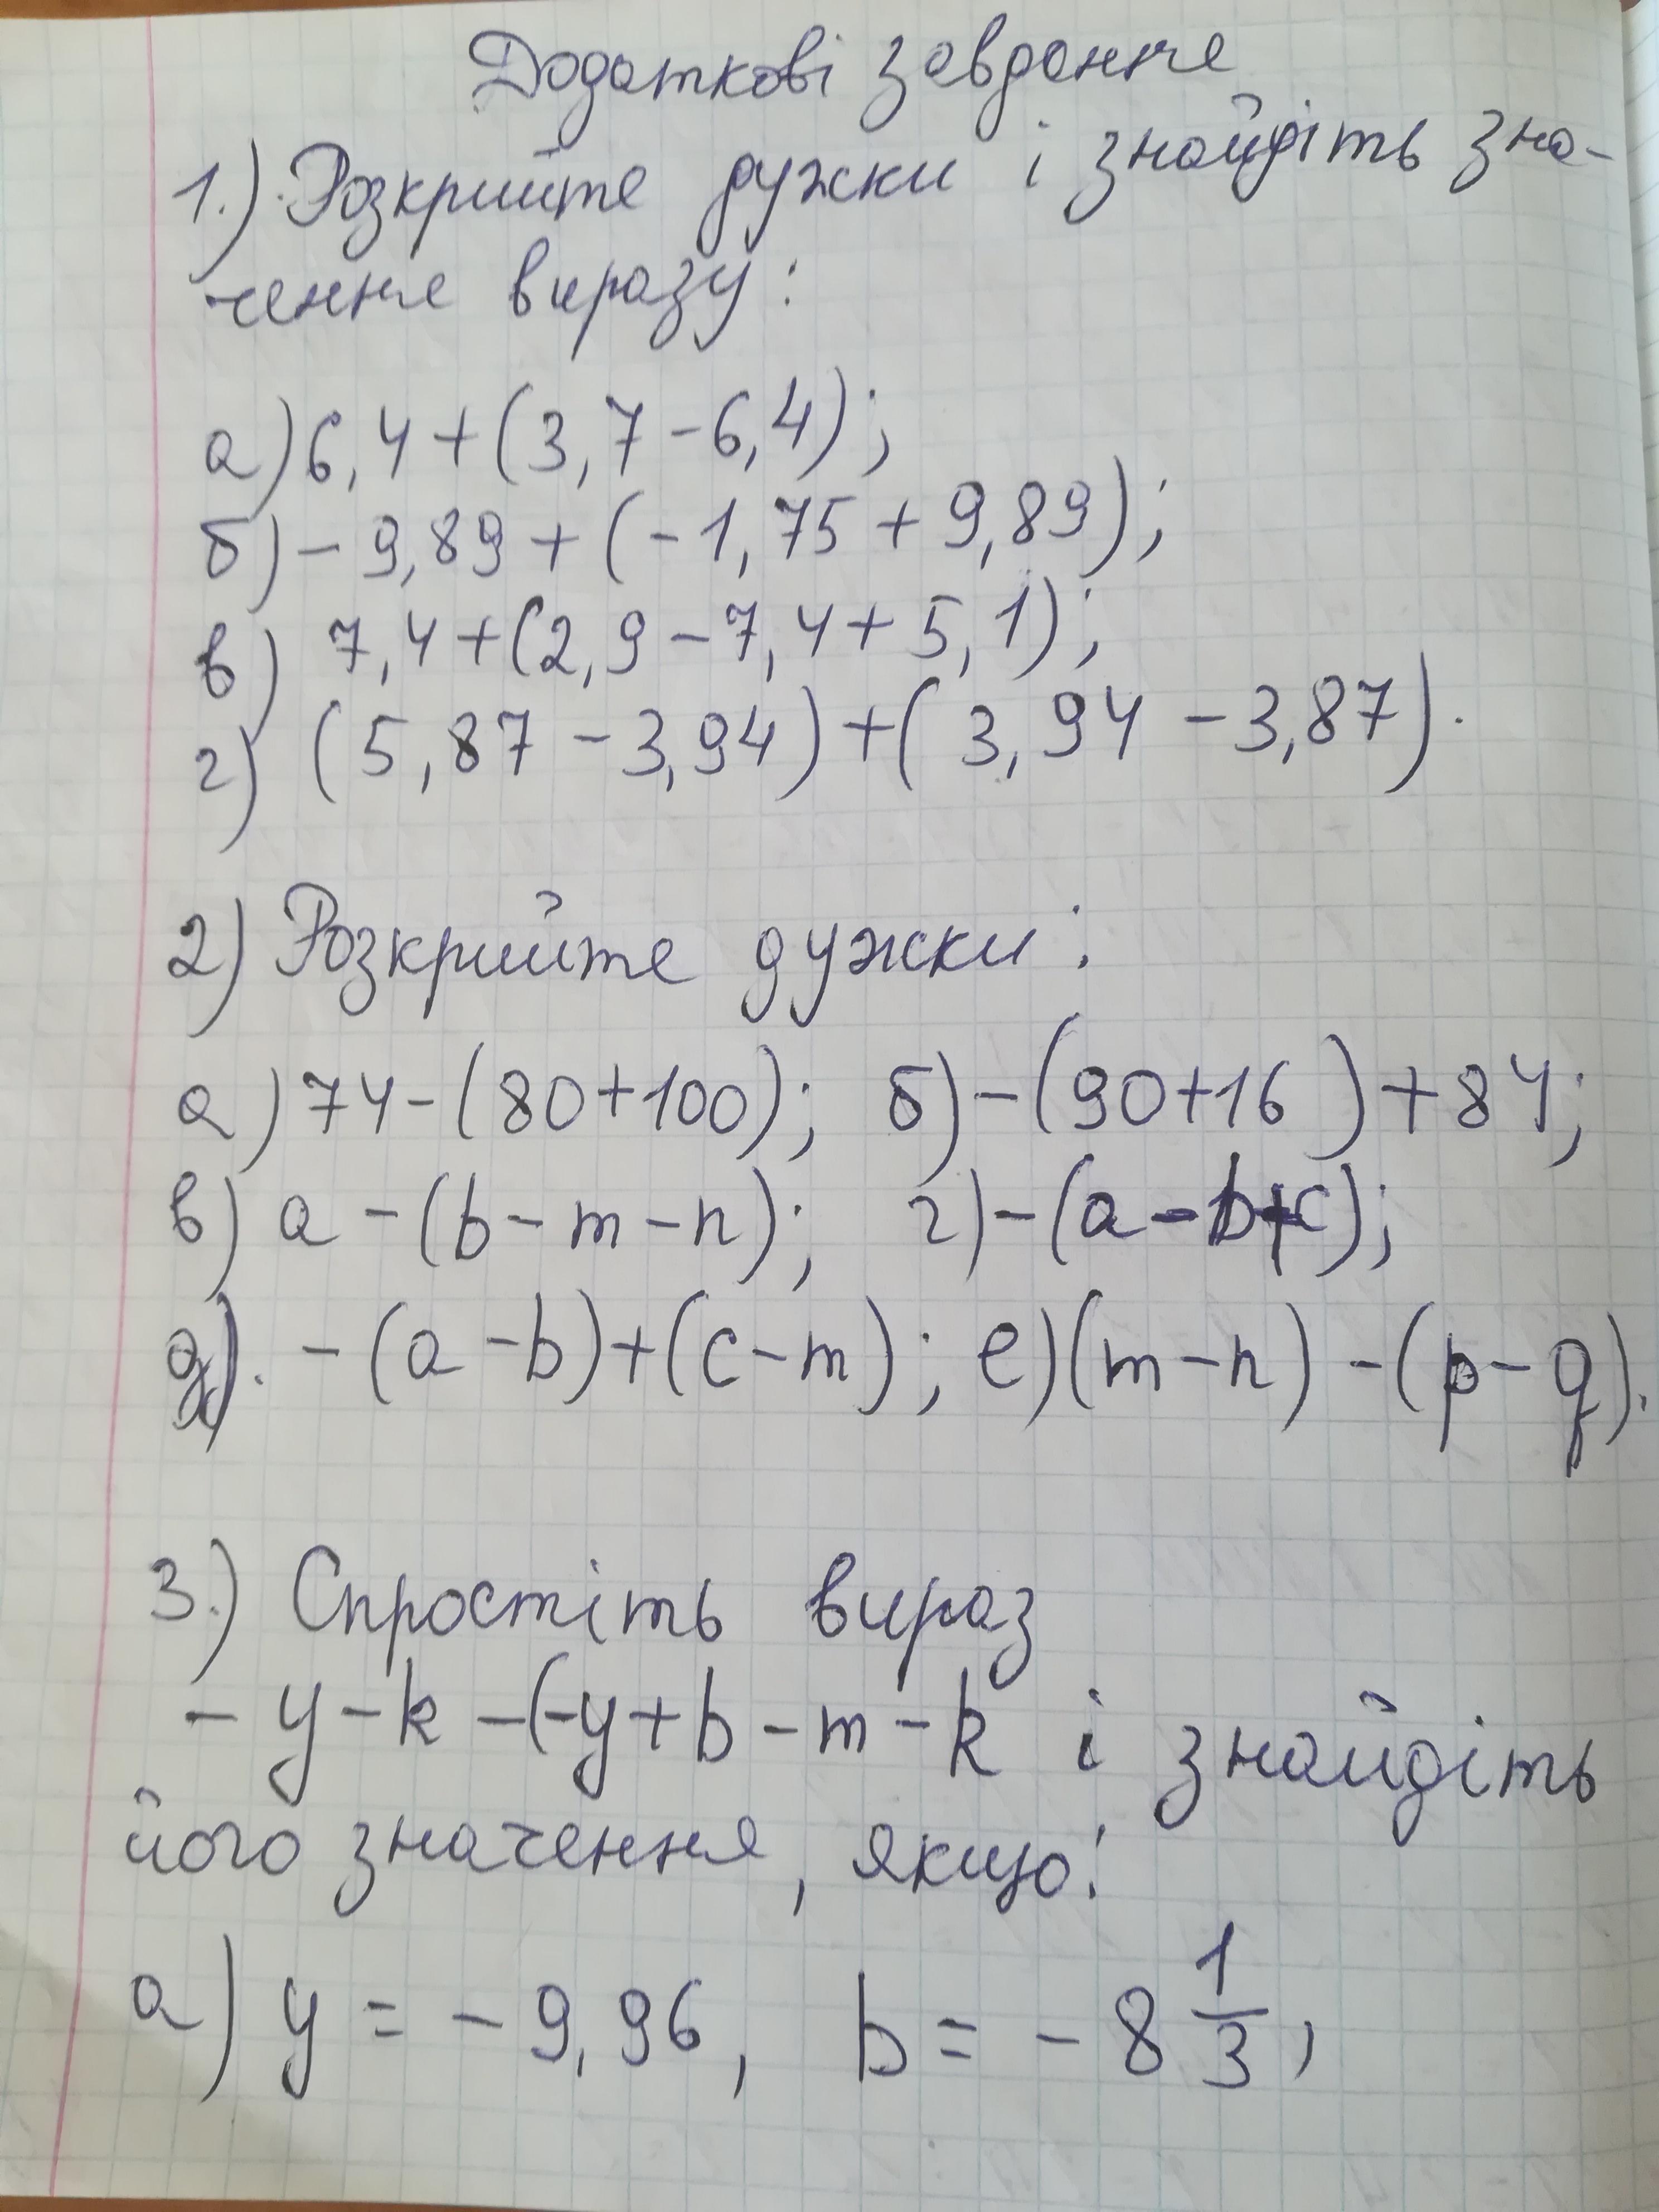 Додаткові завдання
1.) Розкрийте дужки і знайдіть зна-
чення виразу:
а) 6,4+(3,7-6,4);
б) -9,89+(-1,75+9,89);
в) 7,4+(2,9-7,4+5,1);
г) (5,87-3,94)+(3,94-3,87).
2) Розкрийте дужки:
а) 74-(80+100); б) -(90+16)+84;
в) a-(b-m-n); г) -(a-b+c);
д). -(a-b)+(c-m); е) (m-n)-(p-q).
3.) Спростіть вираз
-y-k-(-y+b-m-k і знайдіть
його значення, якщо:
а) y = -9,96, b = -8 1/3,